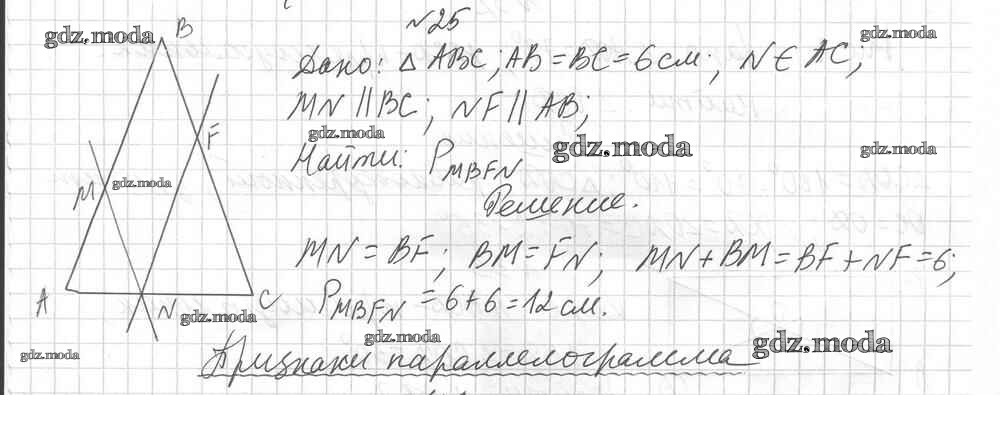 №25
B
gdz.moda
gdz.moda
Дано: △ ABC; AB = BC = 6 см; N ∈ AC;
MN || BC; NF || AB;
F
gdz.moda
gdz.moda
gdz.moda
Найти: P MBFN
M
gdz.moda
Решение.
MN = BF; BM = FN; MN + BM = BF + NF = 6;
A
N
C
P MBFN = 6 + 6 = 12 см.
gdz.moda
gdz.moda
gdz.moda
gdz.moda
Признаки параллелограмма